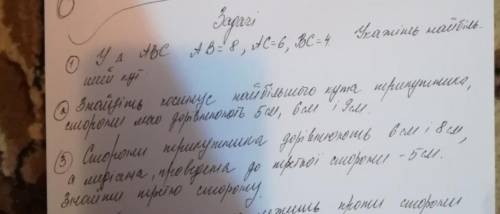 Задачі
① У △ ABC AB=8, AC=6, BC=4. Укажіть найбіль-
ший кут
② Знайдіть косинус найбільшого кута трикутника,
сторони якого дорівнюють 5см, 6см і 9см.
③ Сторони трикутника дорівнюють 6см і 8см,
а медіана, проведена до третьої сторони - 5см.
Знайти третю сторону.
проти сторони